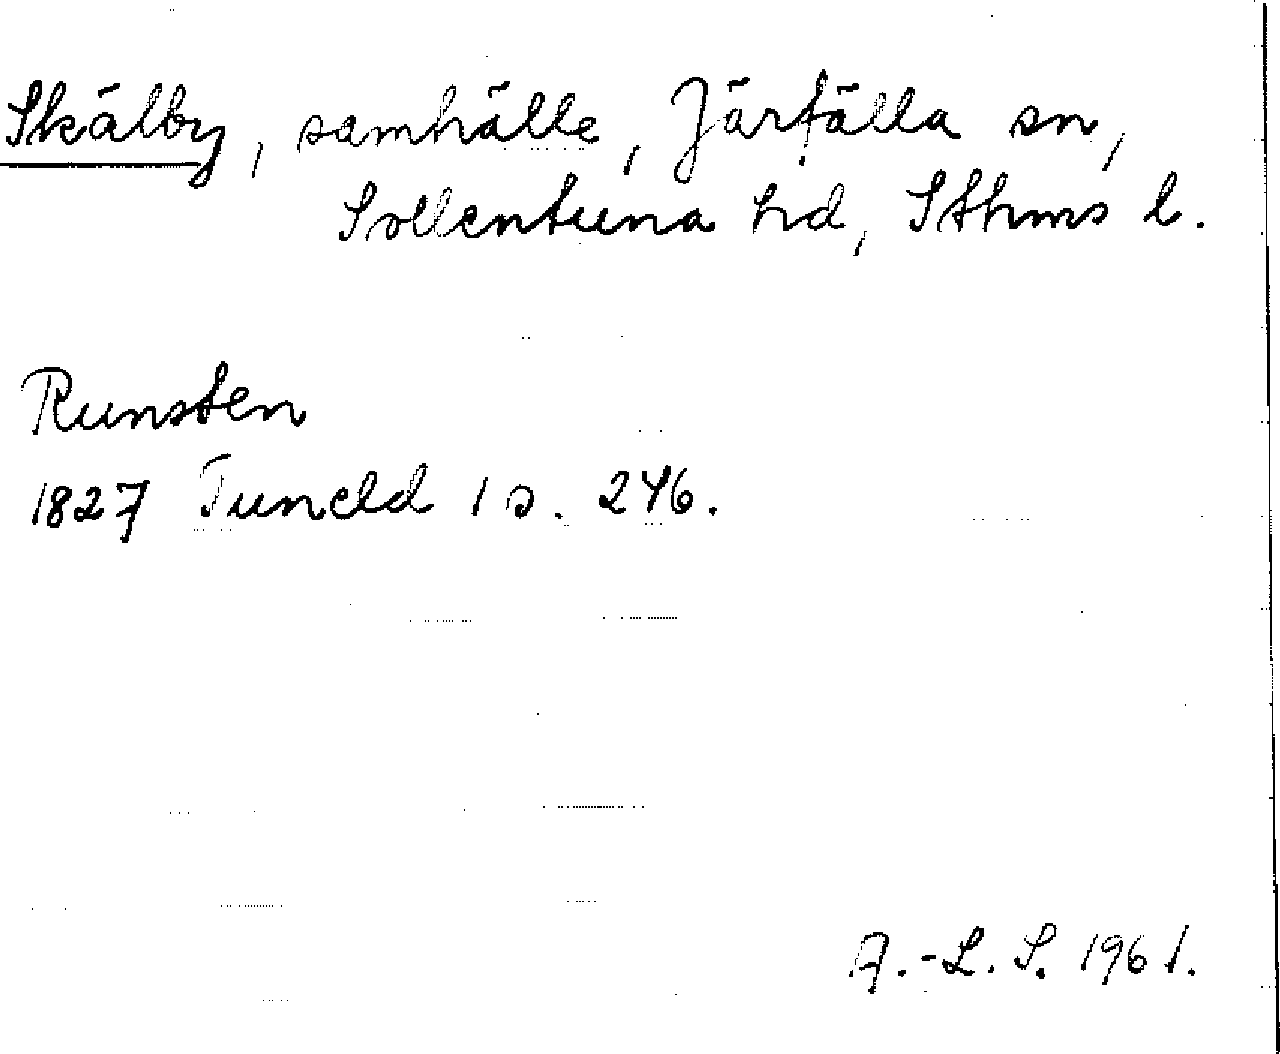 Skälby, samhälle, Järfälla sn,
Sollentuna hd, Sthms l.
Runsten
1827 Tuneld 1 s. 246.
A.-L. S. 1961.